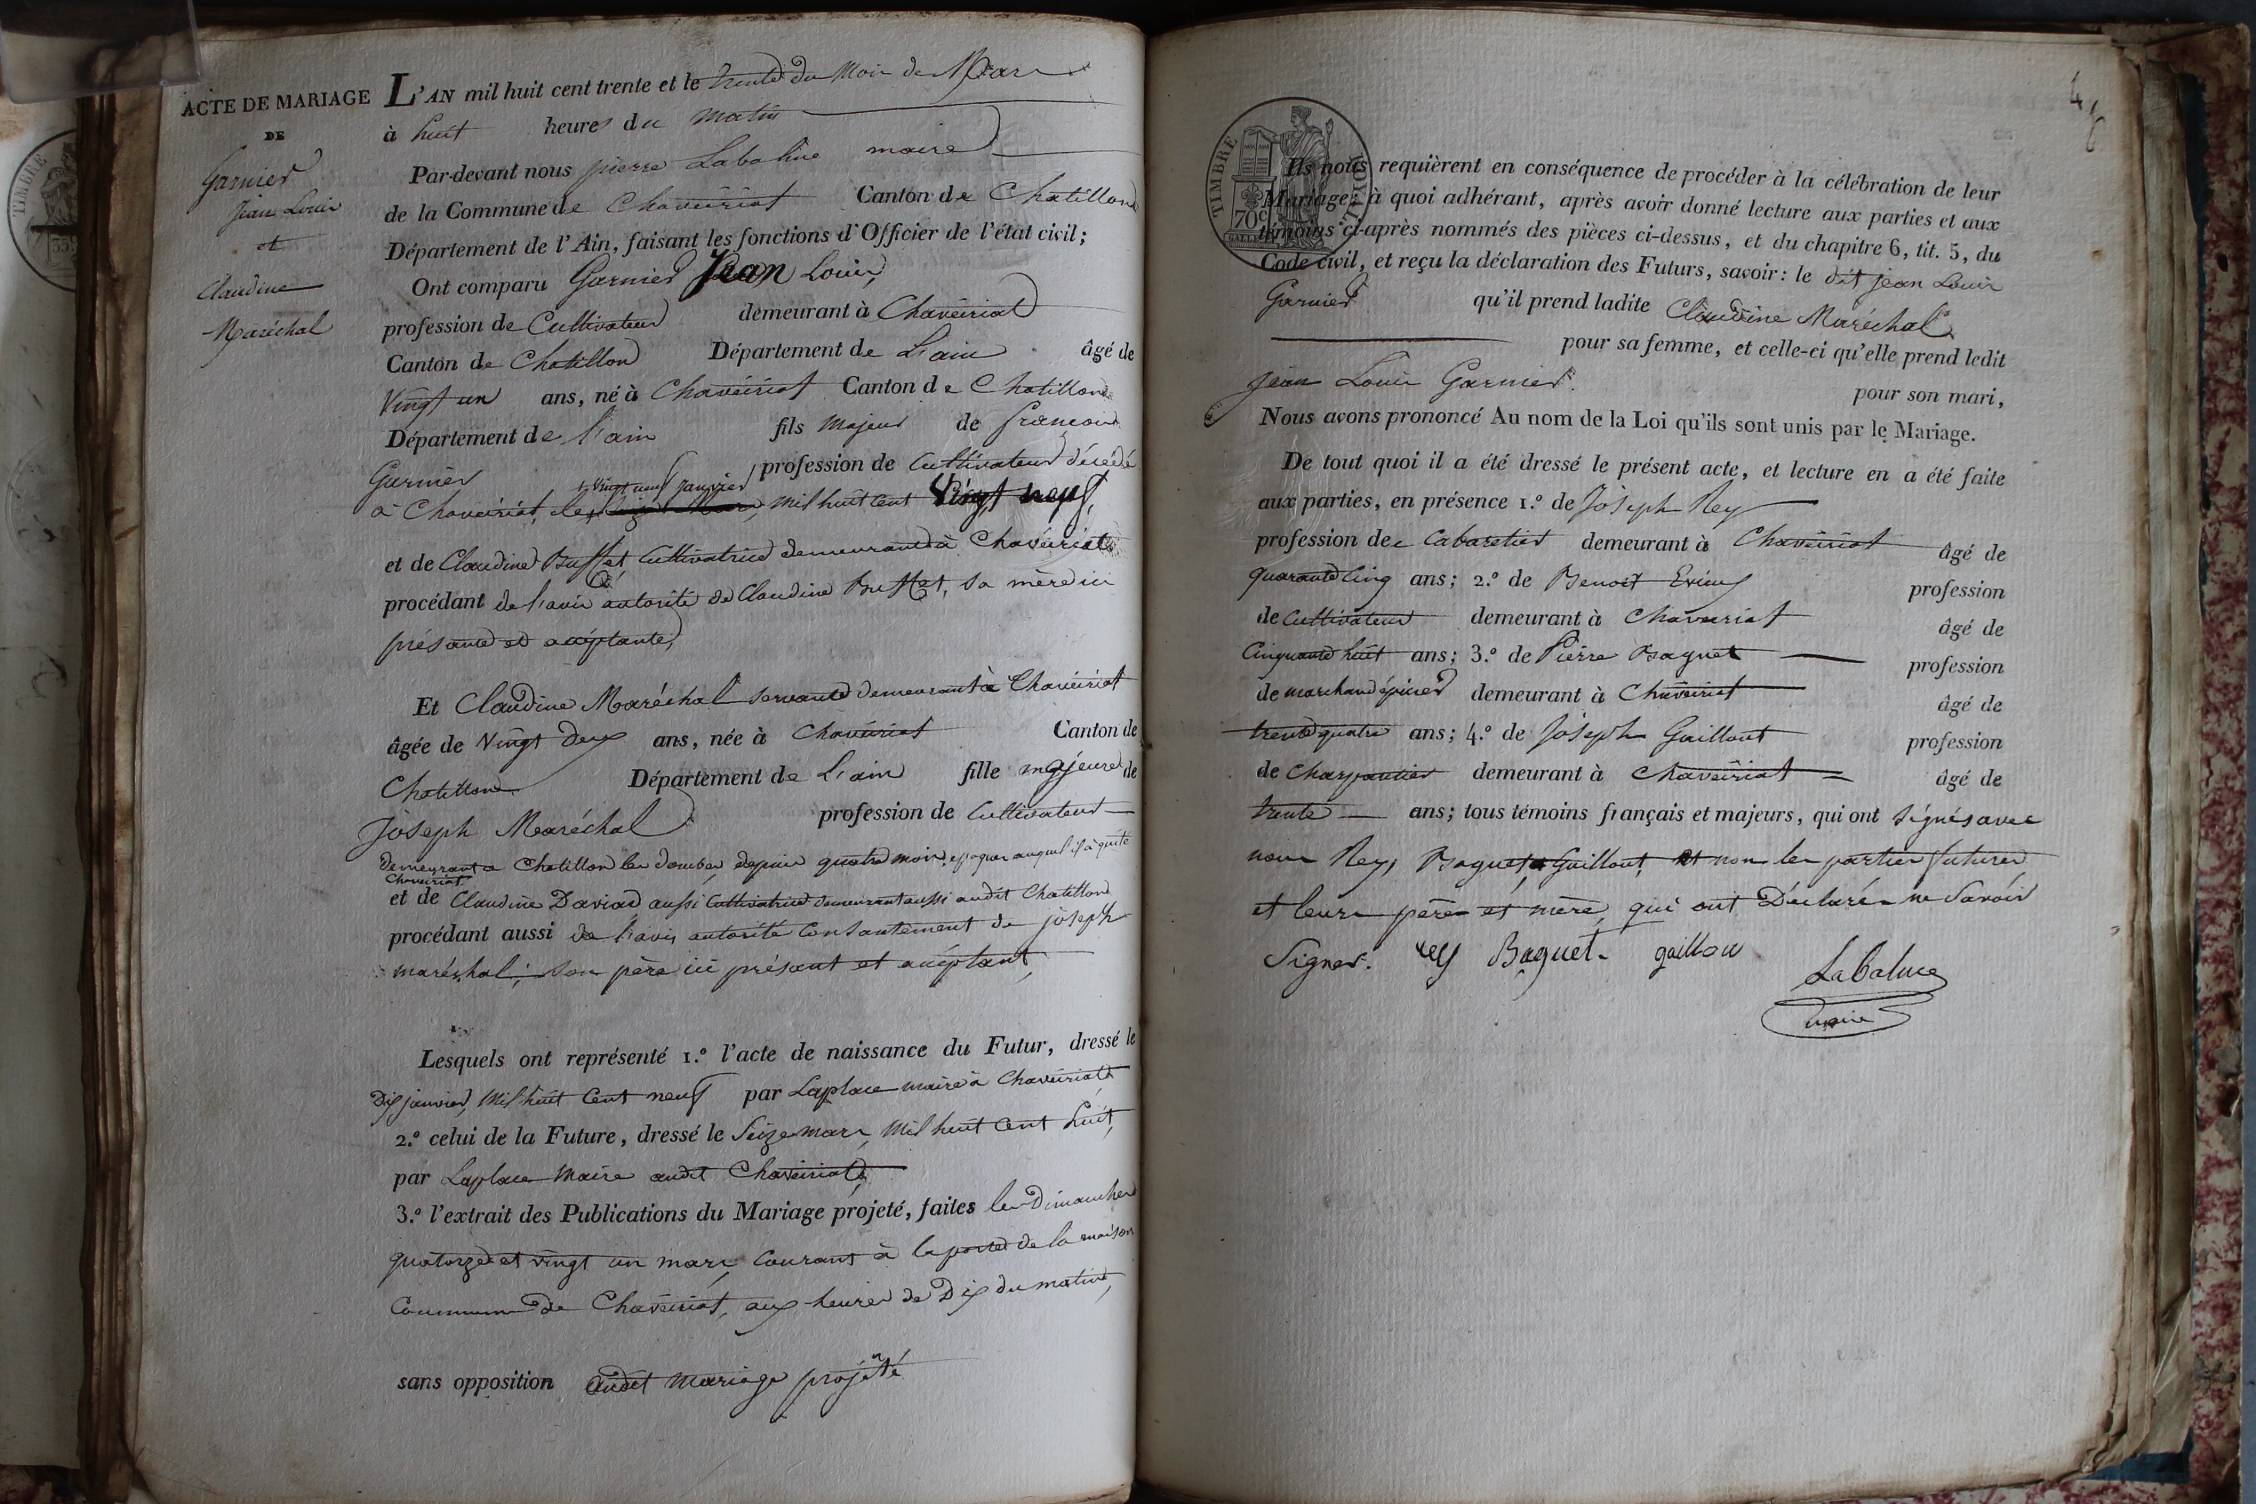 ACTE DE MARIAGE
DE
Garnier
jean Louis
et
Claudine
Maréchal
L'AN mil huit cent trente et le trente du mois de Mars
à huit heures du matin
Par-devant nous pierre Labalme maire
de la Commune de Chaveiriat Canton de Chatillon
Département de l'Ain, faisant les fonctions d'Officier de l'état civil;
Ont comparu Garnier Jean Louis,
profession de Cultivateur demeurant à Chaveiriat
Canton de Chatillon Département de L'ain âgé de
Vingt un ans, né à Chaveiriat Canton de Chatillon
Département de l'ain fils majeur de francois
Garnier profession de Cultivateur décédé
à Chaveiriat, le vingt neuf janvier mil huit cent Vingt neuf,
et de Claudine Buffet Cultivatrice demeurant à Chaveiriat
procédant de l'avis autorité de Claudine Buffet, sa mère ici
présente et acéptante,
Et Claudine Maréchal servante demeurant à Chaveiriat
âgée de Vingt deux ans, née à Chaveiriat Canton de
Chatillon Département de L'ain fille majeure de
joseph Maréchal profession de Cultivateur
demeurant a Chatillon les dombes, depuis quatre mois, époque auquel il à quité
Chaveiriat
et de Claudine Daviad aussi Cultivatrice demeurant aussi audit Chatillon
procédant aussi de l'avis autorité consantement de joseph
maréchal, son père ici présent et acéptant,
Lesquels ont représenté 1.° l'acte de naissance du Futur, dressé le
Dix janvier, Mil huit Cent neuf par Laplace maire à Chaveiriat
2.° celui de la Future, dressé le Seize mars, Mil huit Cent huit,
par Laplace Maire audit Chaveiriat,
3.° l'extrait des Publications du Mariage projeté, faites les Dimanches
quatorze et vingt un mars Courant à la porte de la maison
Commune de Chaveiriat, aux heures de Dix du matin,
sans opposition audit mariage projeté
4
6
TIMBRE
70c
Ils nous requièrent en conséquence de procéder à la célébration de leur
Mariage; à quoi adhérant, après avoir donné lecture aux parties et aux
témoins ci-après nommés des pièces ci-dessus, et du chapitre 6, tit. 5, du
Code civil, et reçu la déclaration des Futurs, savoir: le dit jean Louis
Garnier qu'il prend ladite Claudine Maréchal
pour sa femme, et celle-ci qu'elle prend ledit
jean Louis Garnier. pour son mari,
Nous avons prononcé Au nom de la Loi qu'ils sont unis par le Mariage.
De tout quoi il a été dressé le présent acte, et lecture en a été faite
aux parties, en présence 1.° de Joseph Rey
profession de Cabaretier demeurant à Chaveiriat âgé de
quarante cinq ans; 2.° de Benoit profession
de Cultivateur demeurant à Chaveiriat âgé de
Cinquante huit ans; 3.° de Pierre Baguet profession
de marchand épicier demeurant à Chaveiriat âgé de
trente quatre ans; 4.° de Joseph Guillout profession
de Charpantier demeurant à Chaveiriat âgé de
trente ans; tous témoins français et majeurs, qui ont signés avec
nous Rey, Baguet, Guillout, et non les parties futures
et leurs père et mère, qui ont Déclarés ne Savoir
Signer. Rey Baguet guillou Labalme
maire
TIMBRE
35c